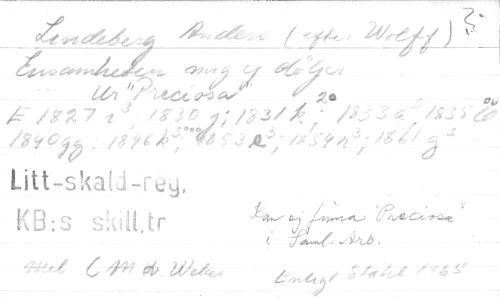 Lindeberg Anders (efter Wolff) ?
Ensamheten mig ej döljer
Ur "Preciosa"
E 1827 r³, 1830 j; 1831 k²⁰; 1833 a³, 1835
1840 gg; 1846 k³; 1853 e³; 1854 n³; 1861 g³
Litt-skald-rey,
KB:s skill.tr
Kan ej finna "Preciosa"
i Saml. Arb.
Mel (M v. Weber
Enligt